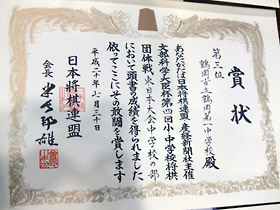 賞状
第三位
鶴岡市立鶴岡第一中学校殿
あなたがたは日本将棋連盟 産経新聞社主催
文部科学大臣杯第四回小・中学校将棋
団体戦東日本大会中学校の部
において頭書の成績を得られました
依ってここにその敢闘を賞します
平成二十年七月三十日
日本将棋連盟
会長 米長邦雄